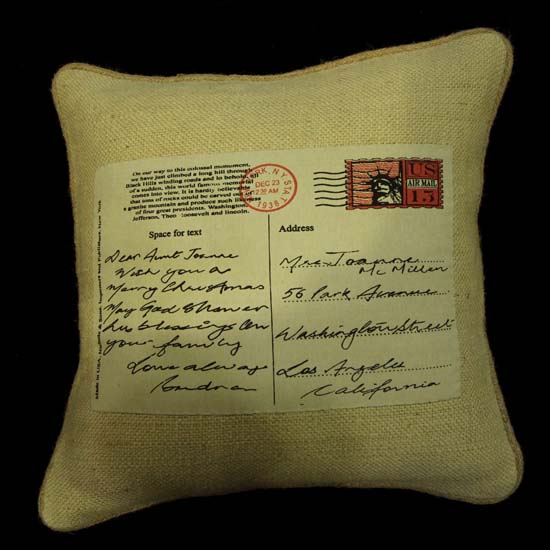 On our way to this colossal monument,
we have just climbed a long hill through
Black Hills winding roads and lo behold
of a sudden, this world famous memorial
comes into view. It is hardly believable
that tons of rocks could be carved out of
a granite mountain and produce such likeness
of four great presidents. Washington,
Jefferson, Theo Roosevelt and lincoln.
PARK, N.Y STAT
DEC 23
12 30 AM
1938
US
AIR MAIL
1.5
Space for text
Dear Aunt Joanne
Wish you a
Merry Christmas
May God Shower
his blessings on
your family
Love always
Sandra
Address
Mrs. Joanne
Mc Millen
56 Park Avenue
Washington Street
Los Angeles
California
MADE IN U.S.A.